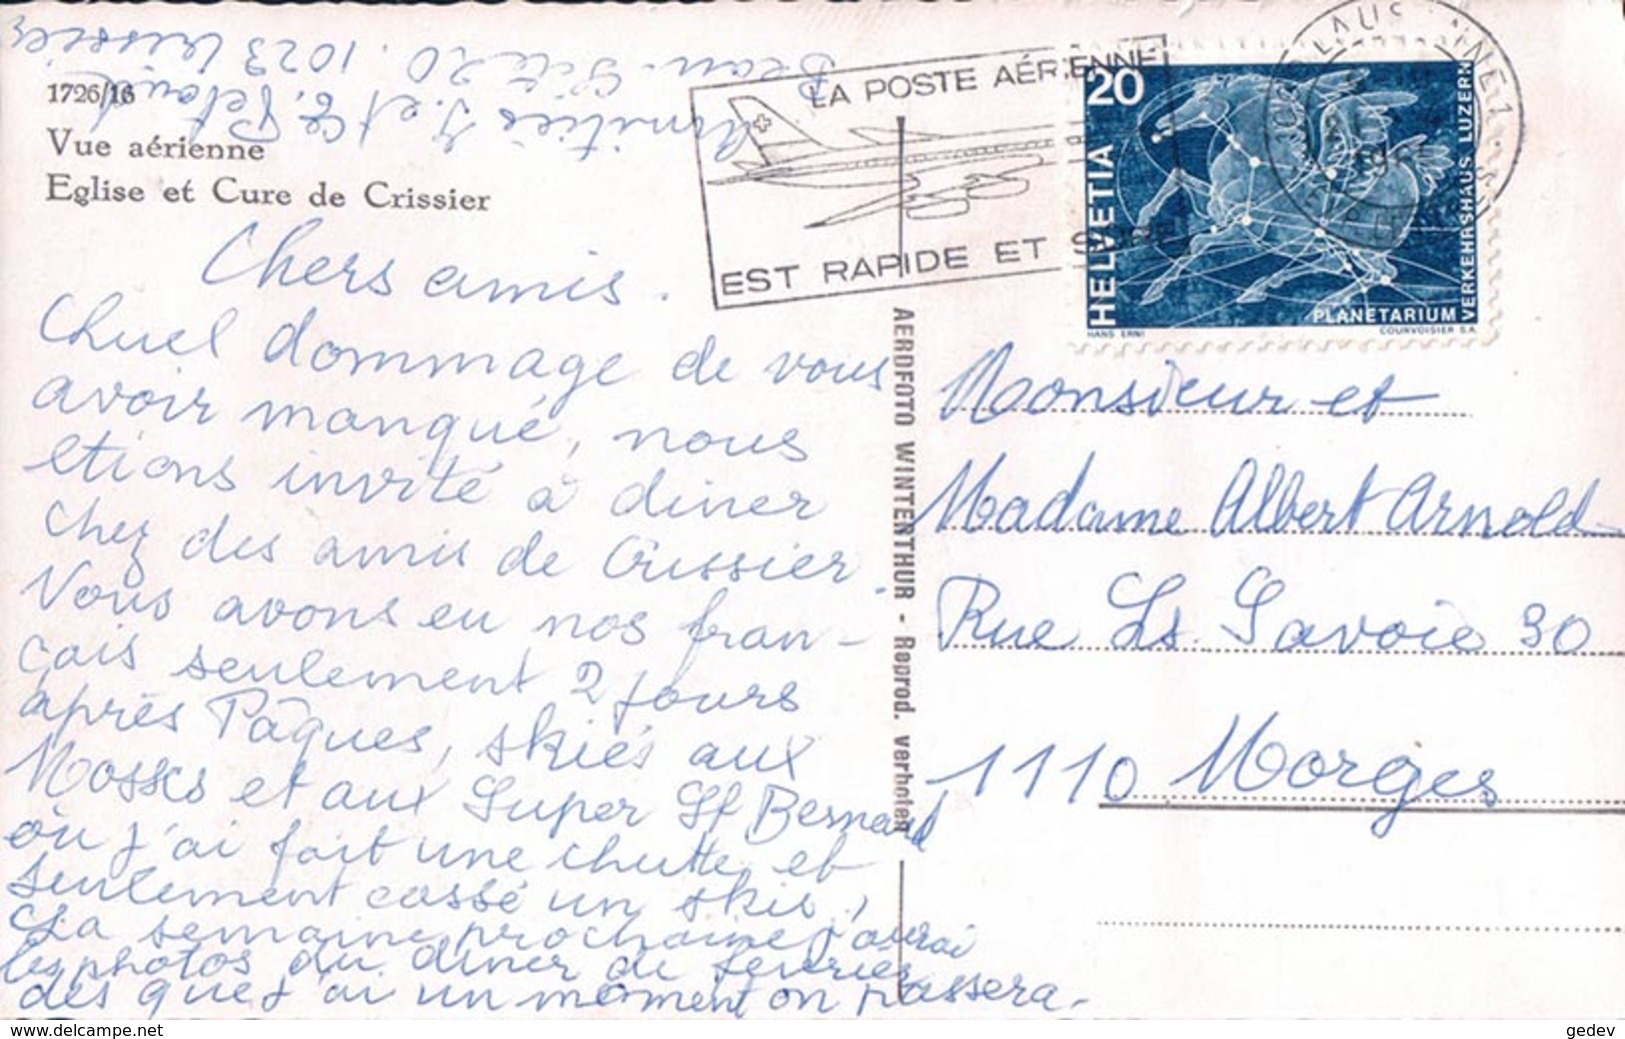 1726/16
Vue aérienne
Eglise et Cure de Crissier
Chers amis.
Quel dommage de vous
avoir manqué, nous
etions invité à diner
chez des amis de Crissier.
Nous avons eu nos fran-
çais seulement 2 jours
après Pâques, skiés aux
Mosses et aux Super St Bernard
où j'ai fait une chutte et
seulement cassé un skis,
La semaine prochaine j'aurai
les photos du diner de fevrier
des que j'ai un moment on passera.
Amitiés J. et
Beau-Site 20. 1023 Crissier
LA POSTE AÉRIENNE
EST RAPIDE ET
LAUSANNE 1
20
HELVETIA
PLANETARIUM
VERKEHRSHAUS LUZERN
HANS ERNI
COURVOISIER S.A.
AEROFOTO WINTERTHUR - Reprod. verboten
Monsieur et
Madame Albert Arnold
Rue Ls. Savoie 30
1110 Morges
www.delcampe.net
gedev